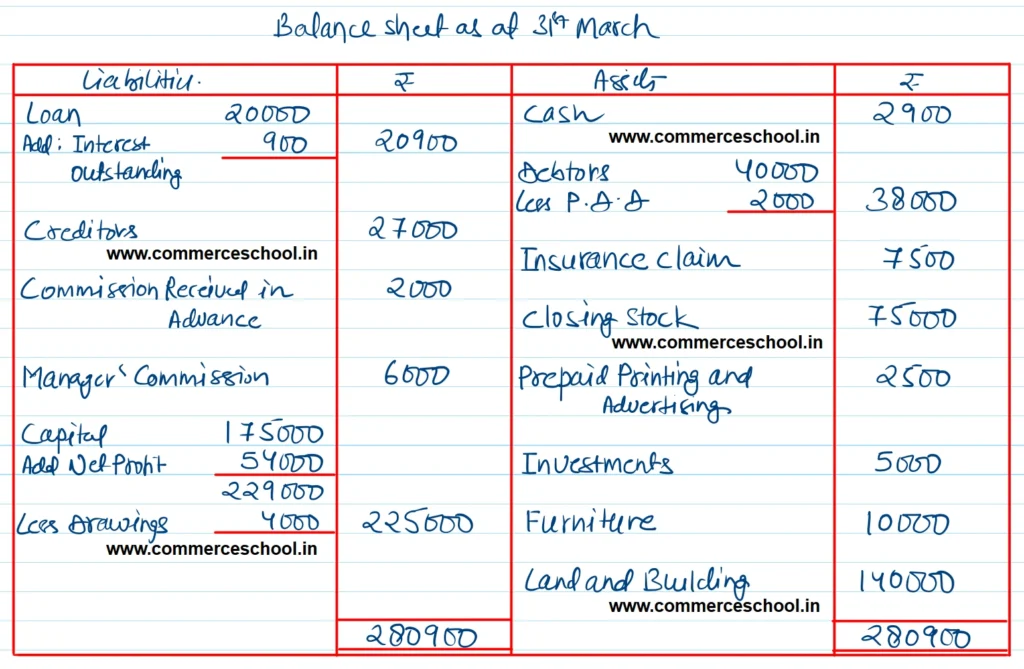 Balance sheet as at 31st March
Liabilities. ₹ Assets ₹
Loan 20000 Cash 2900
Add: Interest 900 20900 www.commerceschool.in
outstanding Debtors 40000
Less P.D.D 2000 38000
Creditors 27000
www.commerceschool.in Insurance claim 7500
Commission Received in 2000
Advance Closing Stock 75000
www.commerceschool.in
Manager' Commission 6000 Prepaid Printing and 2500
Advertising
Capital 175000
Add Net Profit 54000 Investments 5000
229000
Less Drawings 4000 225000 Furniture 10000
www.commerceschool.in
Land and Building 140000
www.commerceschool.in
280900 280900